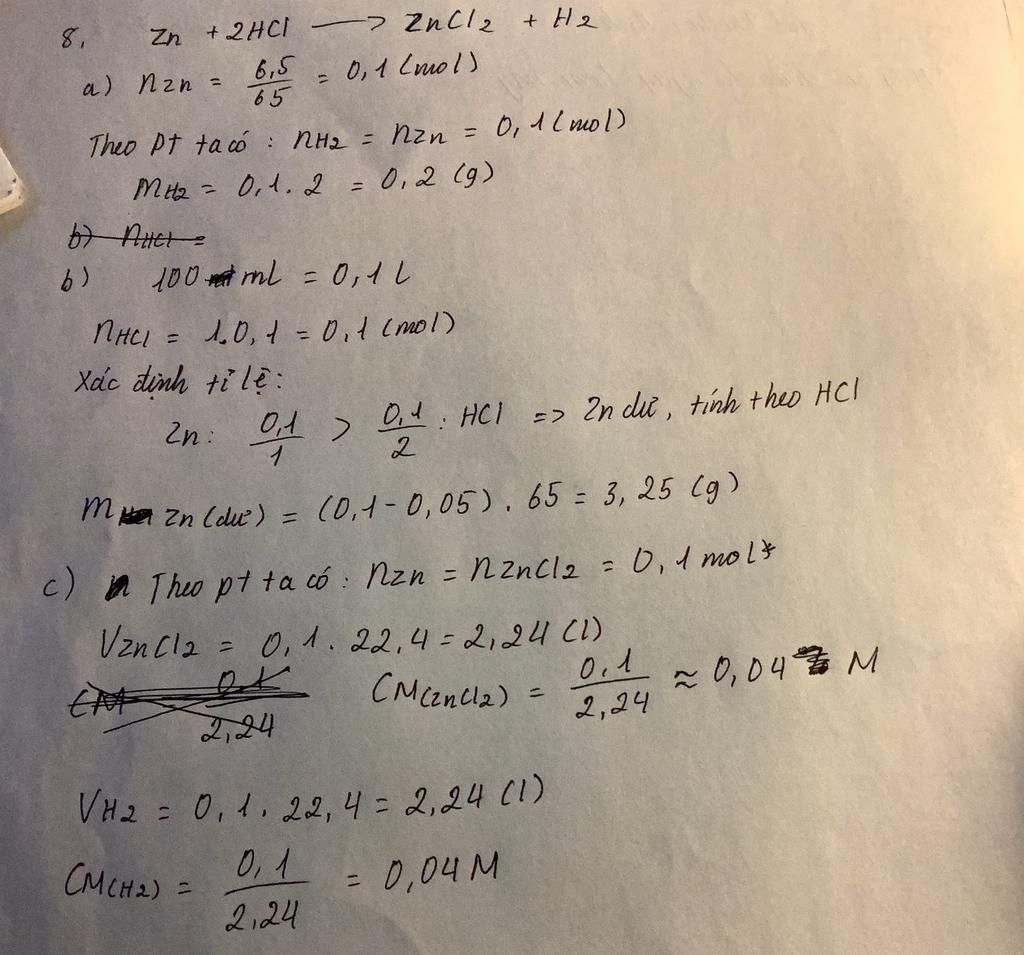 8, Zn + 2HCl → ZnCl2 + H2
a) nZn = 6,5/65 = 0,1 (mol)
Theo pt ta có : nH2 = nZn = 0,1 (mol)
mH2 = 0,1. 2 = 0,2 (g)
b) nHCl =
b) 100 ml = 0,1 L
nHCl = 1.0,1 = 0,1 (mol)
Xác định tỉ lệ:
Zn: 0,1/1 > 0,1/2 : HCl => Zn dư, tính theo HCl
m Zn (dư) = (0,1 - 0,05) . 65 = 3,25 (g)
c) Theo pt ta có : nZn = nZnCl2 = 0,1 mol*
VZnCl2 = 0,1. 22,4 = 2,24 (l)
CM 0,1/2,24 CM(ZnCl2) = 0,1/2,24 ≈ 0,04 M
VH2 = 0,1. 22,4 = 2,24 (l)
CM(H2) = 0,1/2,24 = 0,04 M